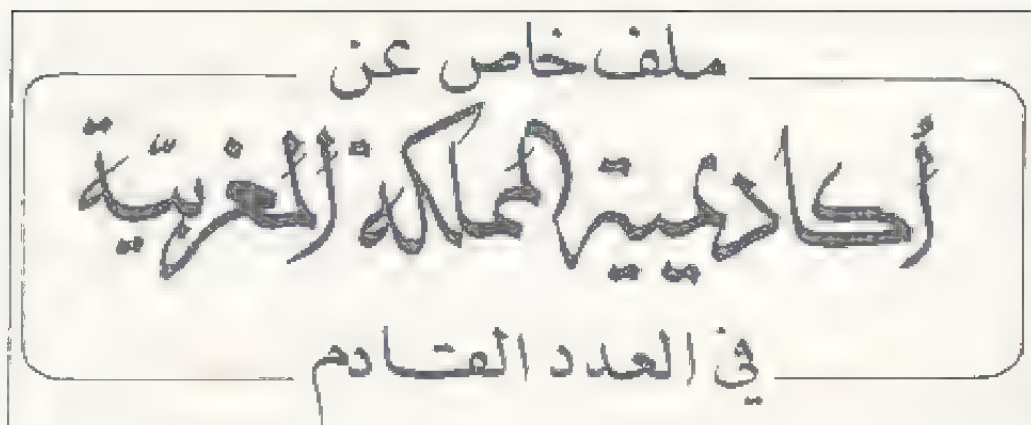 ملف خاص عن
أكاديمية المملكة المغربيّة
في العدد القادم